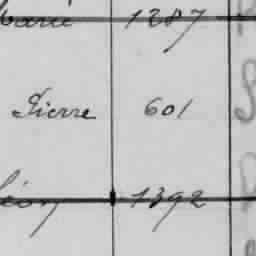 Marie 1287
Pierre 601
Léon 1392